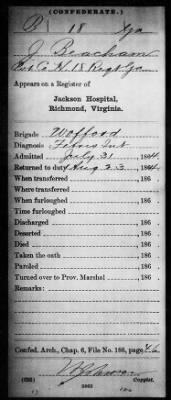 (CONFEDERATE.)
B 18 Ga
J Beacham
Pvt Co H. 18 Regt Ga
Appears on a Register of
Jackson Hospital,
Richmond, Virginia.
Brigade Wofford
Diagnosis Febris Int
Admitted July 31, 1864.
Returned to duty Aug 23, 1864.
When transferred , 186 .
Where transferred
When furloughed , 186 .
Time furloughed
Discharged , 186 .
Deserted , 186 .
Died , 186 .
Taken the oath , 186 .
Paroled , 186 .
Turned over to Prov. Marshal , 186 .
Remarks:
Confed. Arch., Chap. 6, File No. 188, page 46
Copyist.